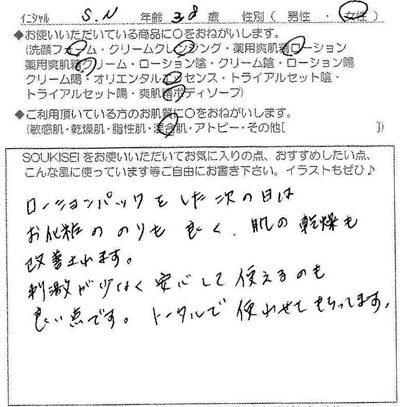 ｲﾆｼｬﾙ S.N 年齢 38 歳 性別（ 男性 ・ 女性 ）
◆お使いいただいている商品に○をおねがいします。
（洗顔フォーム・クリームクレンジング・薬用爽肌精ローション
薬用爽肌精クリーム・ローション陰・クリーム陰・ローション陽
クリーム陽・オリエンタルエッセンス・トライアルセット陰・
トライアルセット陽・爽肌精ボディソープ）
◆ご利用頂いている方のお肌質に○をおねがいします。
（敏感肌・乾燥肌・脂性肌・混合肌・アトピー・その他[ ]）
SOUKISEIをお使いいただいてお気に入りの点、おすすめしたい点、
こんな風に使っています等ご自由にお書き下さい。イラストもぜひ♪
ローションパックをした次の日は
お化粧ののりも良く、肌の乾燥も
改善されます。
刺激が少なく安心して使えるのも
良い点です。トータルで使わせてもらってます。